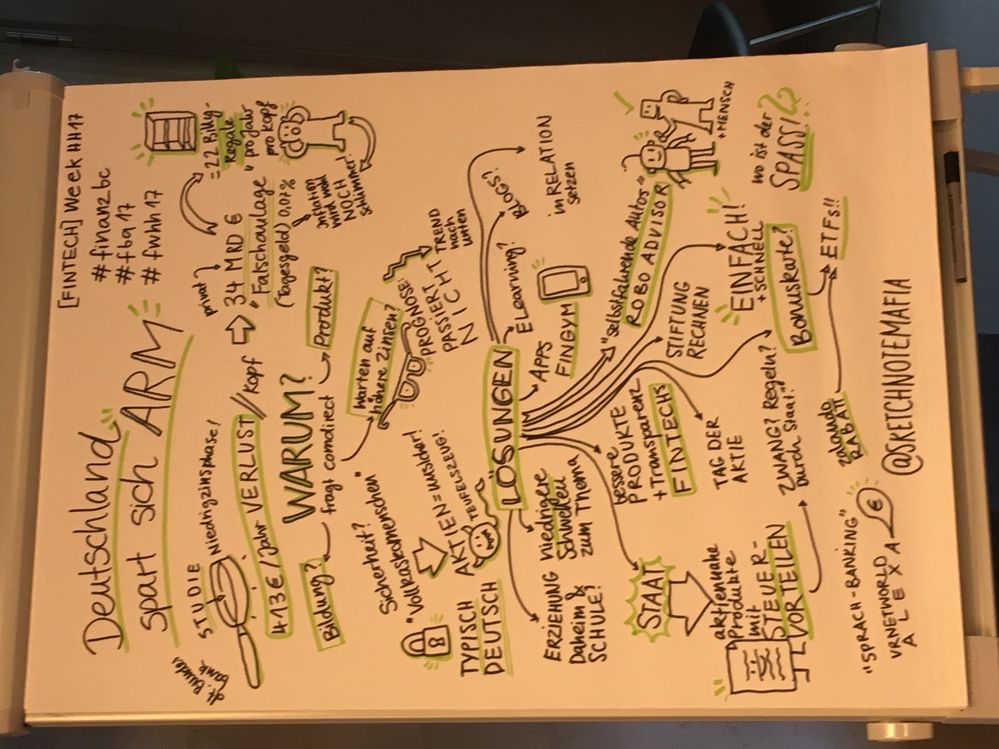 Deutschland
spart sich ARM
[FINTECH] Week HH17
#finanzbc
#fbq17
#fwhh17
STUDIE
dt. Bundesbank
Niedrigzinsphase!
413€/Jahr VERLUST // Kopf
privat
34 MRD €
"Falschanlage"
(Tagesgeld) 0,07%
= 22 Billy-
Regale
pro Jahr
pro Kopf
Inflation
wird wohl
NOCH
schlimmer
WARUM?
fragt comdirect
Bildung?
Produkt?
Warten auf
höhere Zinsen?
PROGNOSE:
PASSIERT
NICHT
TREND
nach
unten
Sicherheit?
"Vollkaskomenschen"
TYPISCH
DEUTSCH
AKTIEN = Insider!
TEUFELSZEUG!
LÖSUNGEN
ERZIEHUNG
Daheim &
SCHULE?
niedrigere
Schwellen
zum Thema
APPS
FINGYM
ELearning?
BLOGS?
in RELATION
setzen
STAAT
aktiennahe
Produkte
mit
STEUER-
VORTEILEN
bessere
PRODUKTE
+ Transparenz
FINTECHS
TAG DER
AKTIE
STIFTUNG
RECHNEN
"selbstfahrende Autos"
ROBO ADVISOR
+ MENSCH
EINFACH!
+ SCHNELL
wo ist der
SPASS!?
ZWANG? Regeln?
Durch Staat?
Bonuskarte?
zalando
RABATT
ETFs!!
"SPRACH-BANKING"
VRNETWORLD
ALEXA
€
@SKETCHNOTEMAFIA